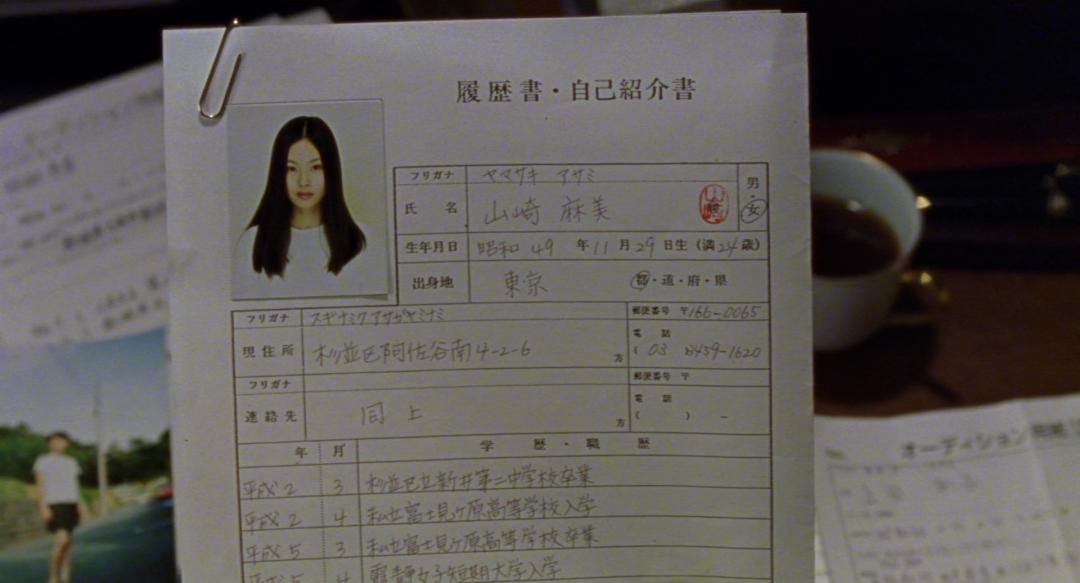 履歴書・自己紹介書
フリガナ ヤマサキ アサミ
氏 名 山崎 麻美
男・女
生年月日 昭和 49 年 11 月 29 日生 (満 24 歳)
出身地 東京 都・道・府・県
フリガナ スギナミクアサガヤミナミ
郵便番号 〒166-0065
現住所 杉並区阿佐谷南4-2-6 方
電話 (03) 8459-1620
フリガナ
郵便番号 〒
連絡先 同上 方
電話 ( ) -
年 月 学歴・職歴
平成2 3 杉並区立新井第二中学校卒業
平成2 4 私立富士見ヶ原高等学校入学
平成5 3 私立富士見ヶ原高等学校卒業
平成5 4 女子短期大学入学
オーディション